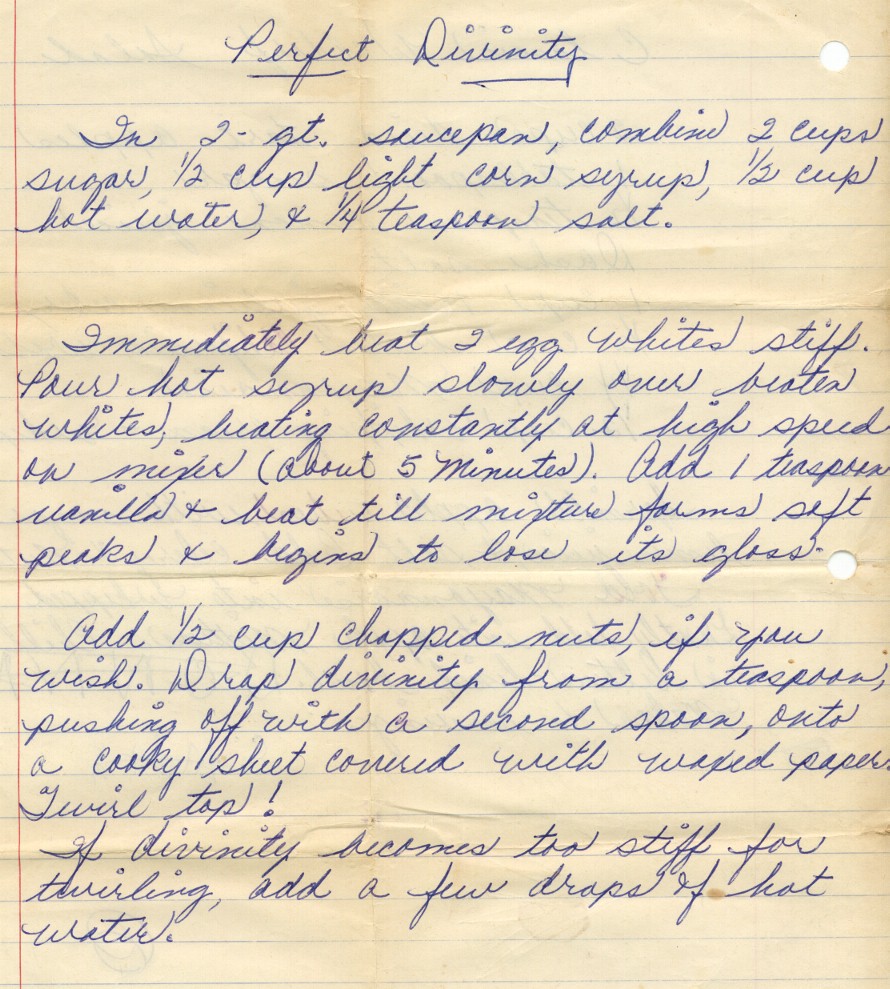 Perfect Divinity
In 2-qt. saucepan, combine 2 cups
sugar, 1/2 cup light corn syrup, 1/2 cup
hot water, & 1/4 teaspoon salt.
Immediately beat 2 egg whites stiff.
Pour hot syrup slowly over beaten
whites, beating constantly at high speed
on mixer (about 5 Minutes). Add 1 teaspoon
vanilla & beat till mixture forms soft
peaks & begins to lose its gloss.
Add 1/2 cup chopped nuts, if you
wish. Drop divinity from a teaspoon,
pushing off with a second spoon, onto
a cooky sheet covered with waxed paper.
Twirl top!
If divinity becomes too stiff for
twirling, add a few drops of hot
water.